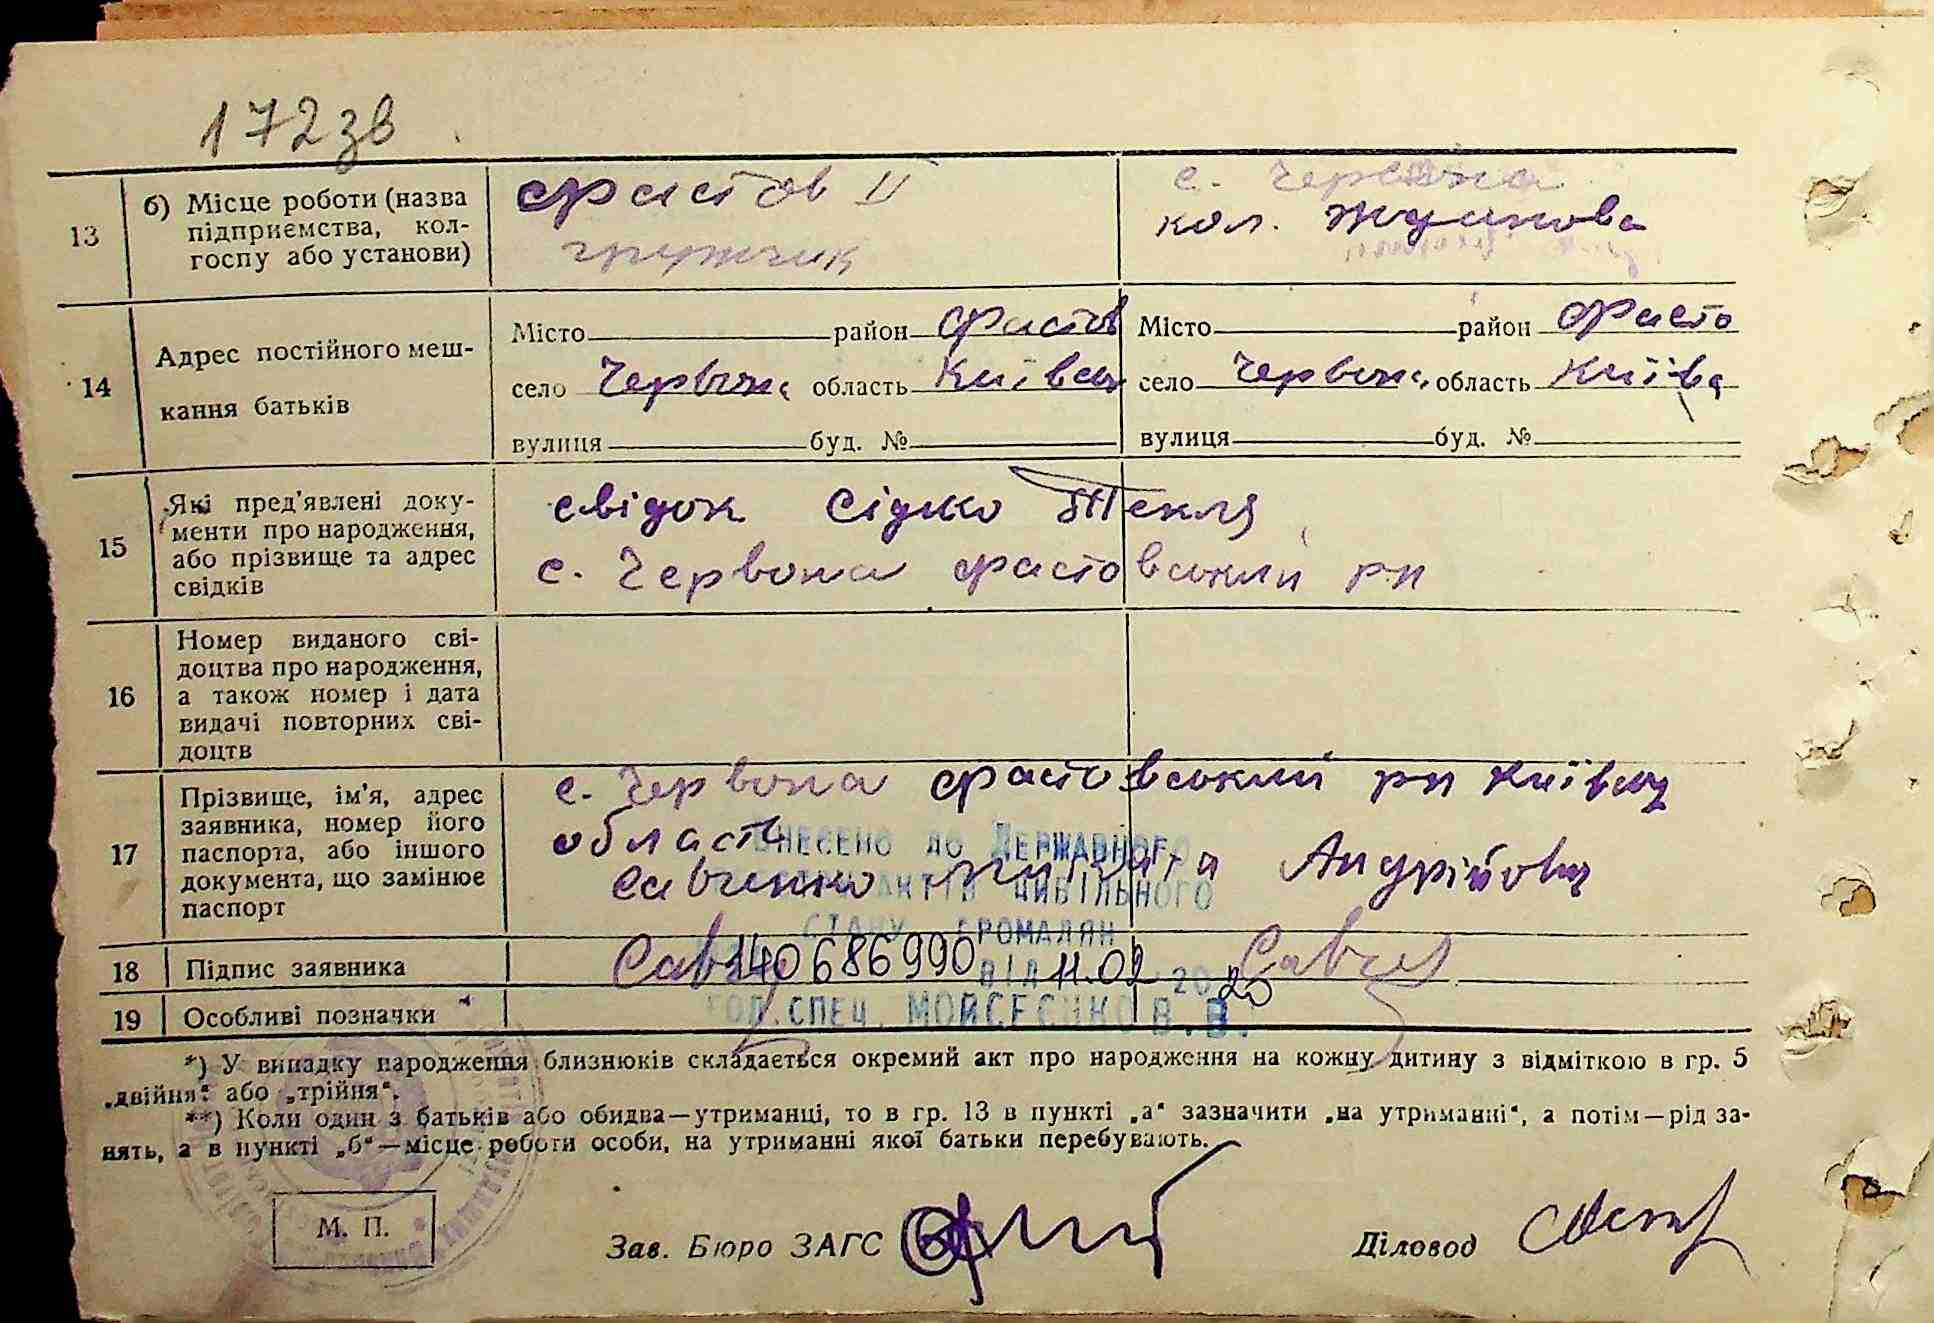 172зв
13 б) Місце роботи (назва підприємства, колгоспу або установи)
Фастов II
грузчик
с. Червона
кол. Жданова
14 Адрес постійного мешкання батьків
Місто район Фастов Місто район Фасто
село Червона область Київськ село Червона область Київs
вулиця буд. № вулиця буд. №
15 Які пред'явлені документи про народження, або прізвище та адрес свідків
свідок Сідко Текля
с. Червона Фастовський рн
16 Номер виданого свідоцтва про народження, а також номер і дата видачі повторних свідоцтв
17 Прізвище, ім'я, адрес заявника, номер його паспорта, або іншого документа, що замінює паспорт
с. Червона Фастовський рн Київськ
область
Савченко Андрійовн
ВНЕСЕНО ДО ДЕРЖАВНОГО
АКТІВ ЦИВІЛЬНОГО
СТАНУ ГРОМАДЯН
18 Підпис заявника
140686990 ВІД 11.02 2020
19 Особливі позначки
ГОЛ. СПЕЦ. МОЙСЕЄНКО В.В.
*) У випадку народження близнюків складається окремий акт про народження на кожну дитину з відміткою в гр. 5
„двійня“ або „трійня“.
**) Коли один з батьків або обидва—утриманці, то в гр. 13 в пункті „а“ зазначити „на утриманні“, а потім—рід за-
нять, а в пункті „б“—місце роботи особи, на утриманні якої батьки перебувають.
М. П.
Зав. Бюро ЗАГС
Діловод